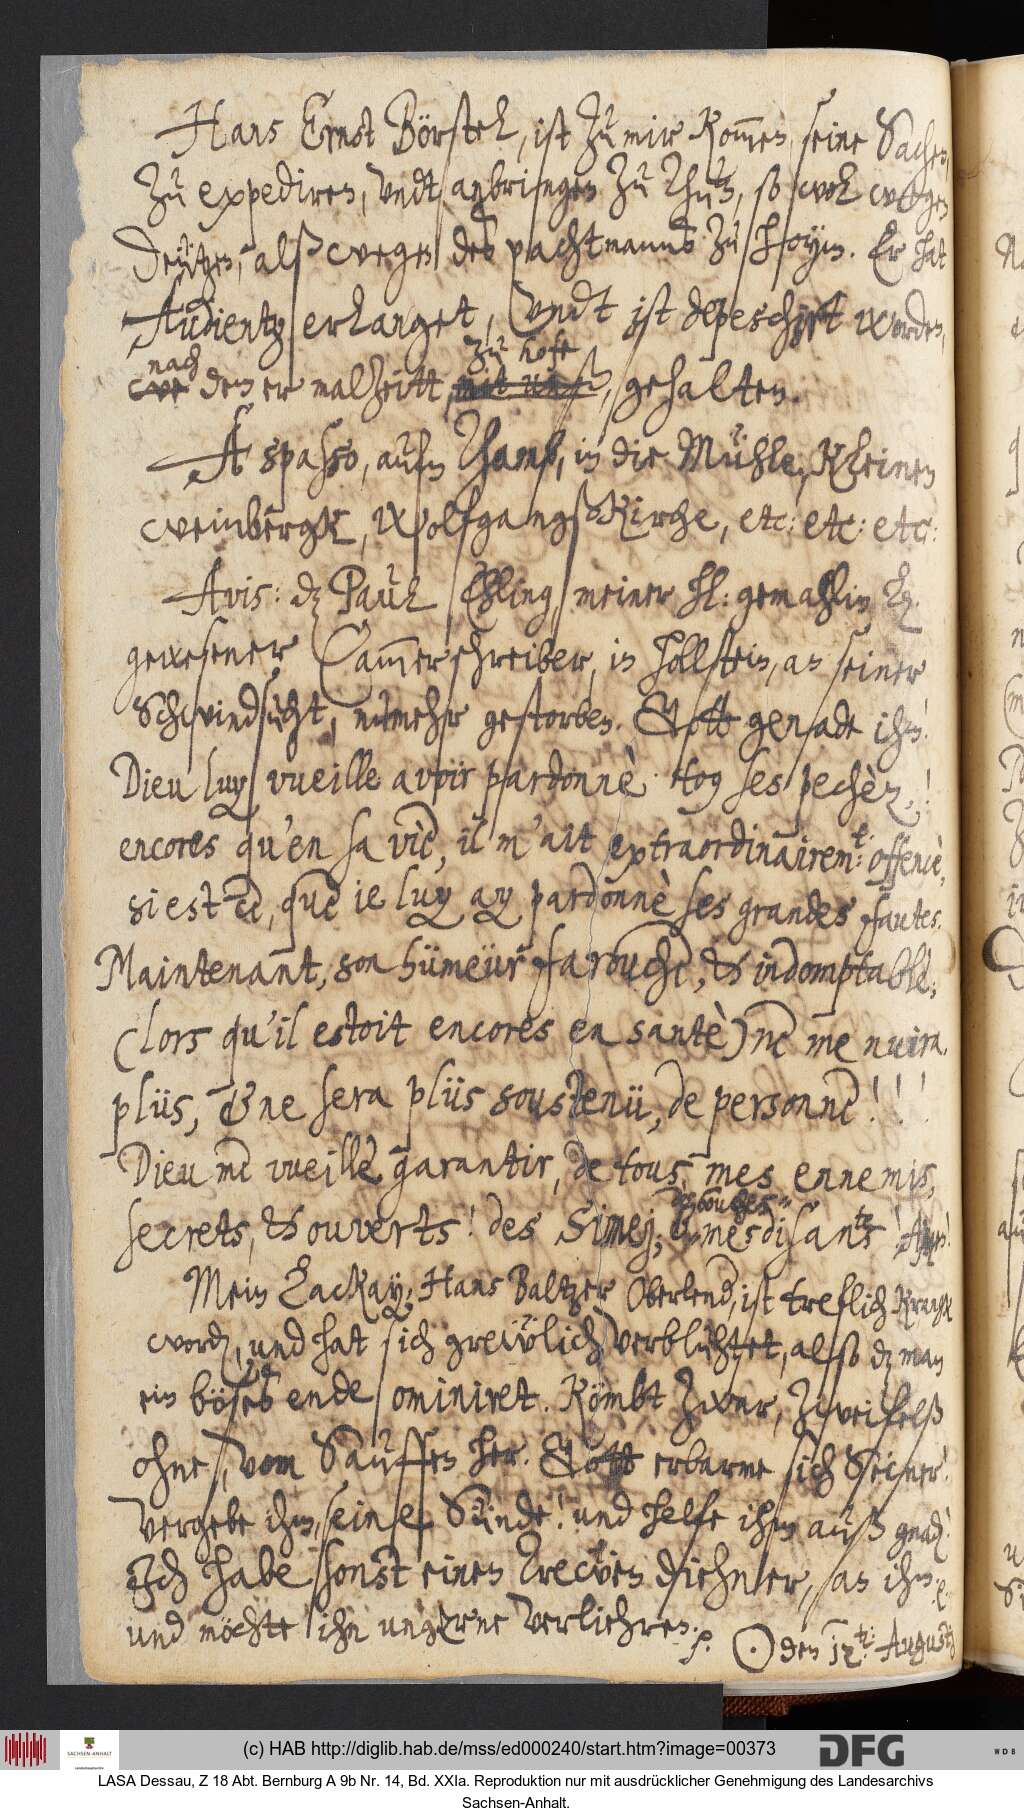 Hans Ernst Börstel, ist zu mir kommen, seine Sachen,
zu expediren, undt anbringen zu thun, so wol wegen
Deützen, alß wegen des pachtmanns zu Hoym. Er hat
Audientz erlanget, undt ist depeschirt worden,
nach zu hofe
dem er malzeitt mit unß, gehalten.
A spasso, aufm Thamb, in die Mühle, kleinen
weinbergk, Wolfgangßkirche, etc: etc: etc:
Avis: dz Paul Ehling, meiner hl: gemahlin
gewesener Cammerschreiber, in hollstein, an seiner
Schwindsucht, numehr gestorben. Gott genade ihm!
Dieu luy vueille avoir pardonnè ses pechèz,!
encores qu'en sa vie, il m'ait extraordinairem:t offencè,
si est ce, que ie luy ay pardonnè ses grandes fautes.
Maintenant, son hümeür farouche, & indomptable,
(lors qu'il estoit encores en santè) ne me nuira
plüs, & ne sera plüs soustenü, de personne! ! !
Dieu me vueille garantir, de tous, mes ennemis,
des bouches
secrets, & ouverts! des Simej, & mesdisants!
Mein Lackay, Hans Baltzer Oberlend, ist treflich kranck
word, und hat sich grewlich verblühtet, also dz man
ein böses ende ominiret. Kömbt zwar, zweifelß
ohne, vom Sauffen her. Gott erbarme sich Seiner!
Vergebe ihm, seine Sünde! und helfe ihm auß gnad!
Ich habe sonst einen trewen diehner, an ihm
und möchte ihn ungerne verliehren. p. ☉ den 12t: Augustj
(c) HAB http://diglib.hab.de/mss/ed000240/start.htm?image=00373
DFG
WDB
SACHSEN-ANHALT
LASA Dessau, Z 18 Abt. Bernburg A 9b Nr. 14, Bd. XXIa. Reproduktion nur mit ausdrücklicher Genehmigung des Landesarchivs
Sachsen-Anhalt.